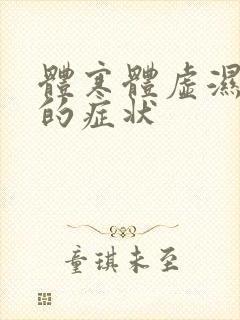 體寒體虛濕
的症状
童琪未至